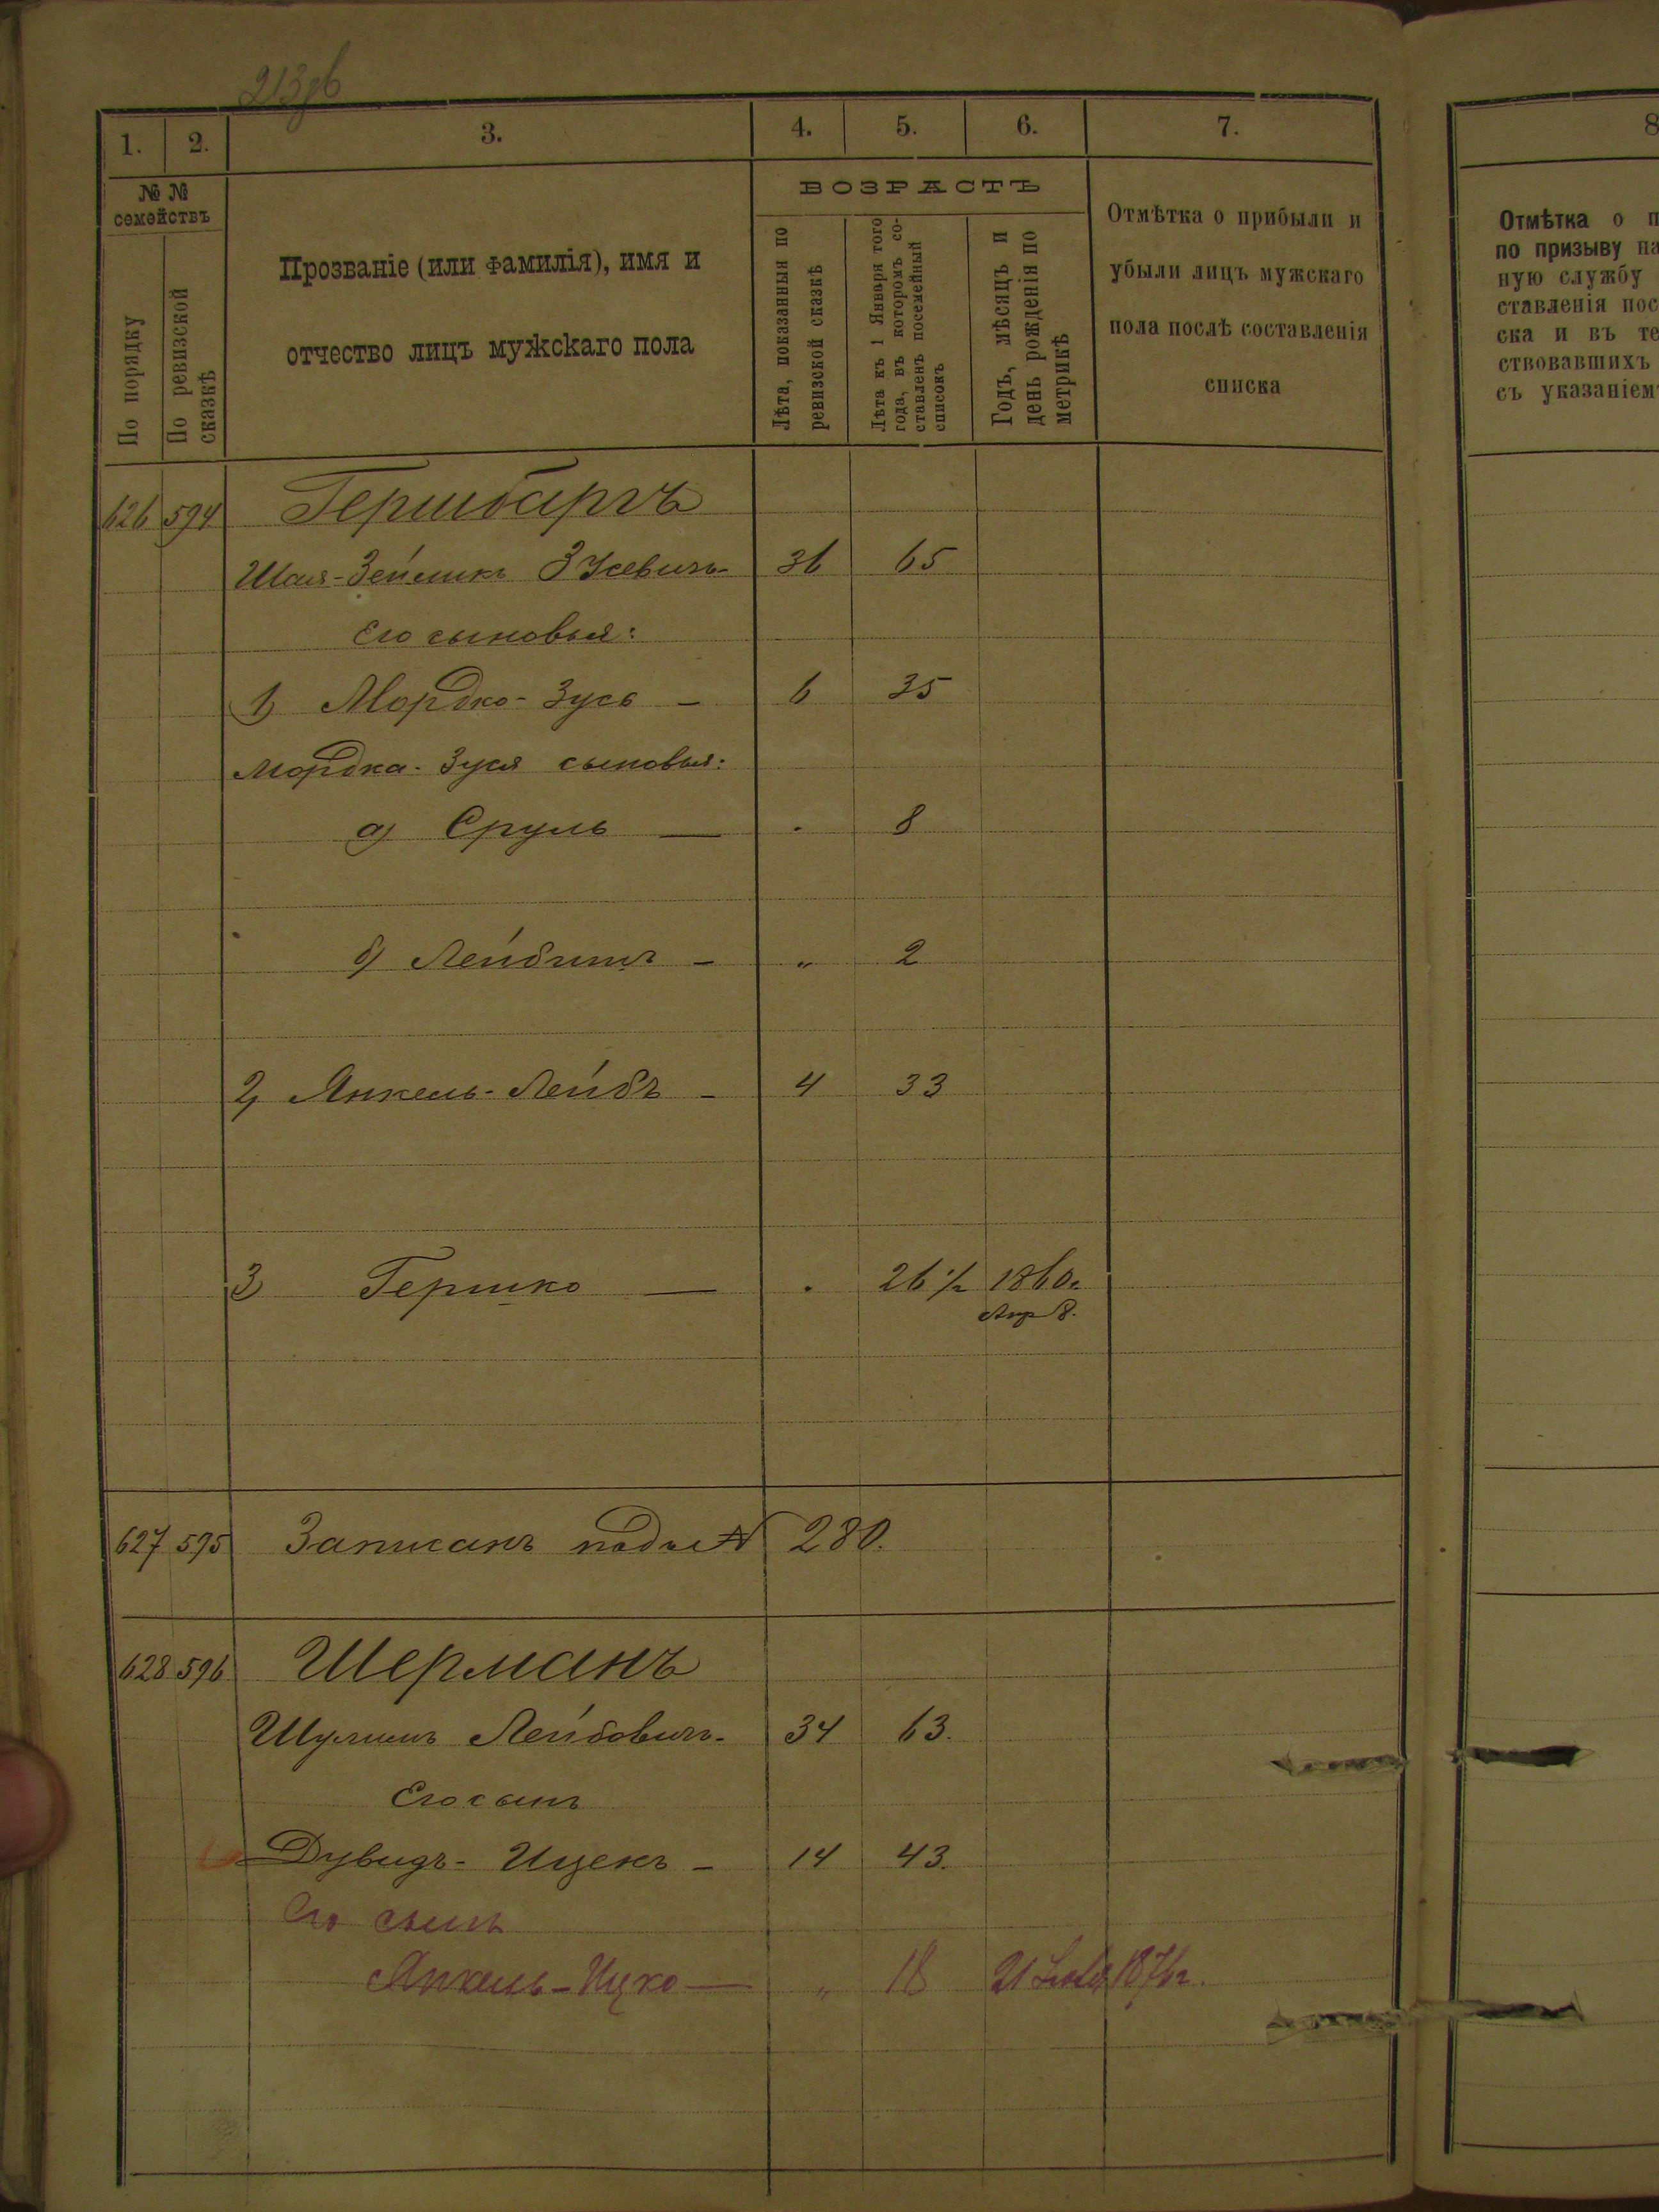 1. 2. 3. 4. 5. 6. 7. 8
№ № семействъ
По порядку
По ревизской сказкѣ
Прозваніе (или фамилія), имя и
отчество лицъ мужскаго пола
ВОЗРАСТЪ
Лѣта, показанныя по
ревизской сказкѣ
Лѣта къ 1 Января того
года, въ которомъ со-
ставленъ посемейный
списокъ
Годъ, мѣсяцъ и
день рожденія по
метрикѣ
Отмѣтка о прибыли и
убыли лицъ мужскаго
пола послѣ составленія
списка
Отмѣтка о п
по призыву на
ную службу
ставленія пос
ска и въ те
ствовавшихъ
съ указаніем
626 594 Гершбаргъ
Шая-Зейликъ Зусевичъ 36 65
Его сыновья:
1) Мордко-Зусь — 6 35
Мордка-Зуся сыновья:
а) Сруль — . 8
б) Лейбишъ — „ 2
2) Янкель-Лейбъ — 4 33
3 Гершко — . 26½ 1860г.
Апр 8.
627 595 Записанъ подъ № 280.
628 596 Шерманъ
Шулимъ Лейбовичъ. 34 63.
Его сынъ
Дувидъ-Ицекъ — 14 43.
Его сынъ
Янкель-Ицко — „ 18